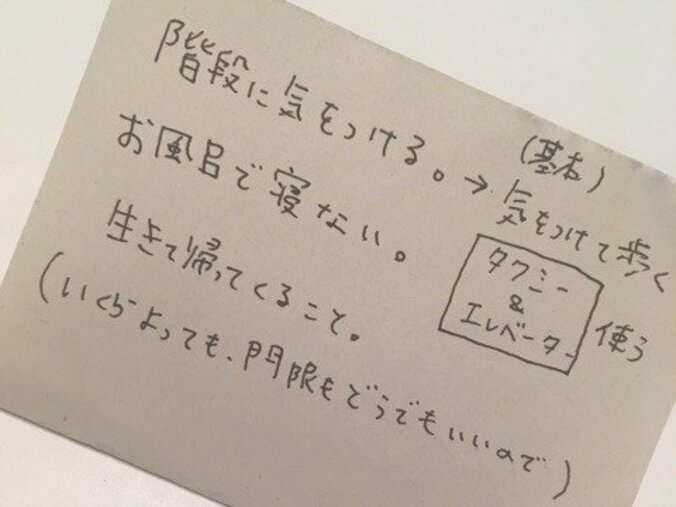 階段に気をつける。→(基本)気をつけて歩く
タクシー&エレベーター使う
お風呂で寝ない。
生きて帰ってくること。
(いくらよっても、門限もどうでもいいので)